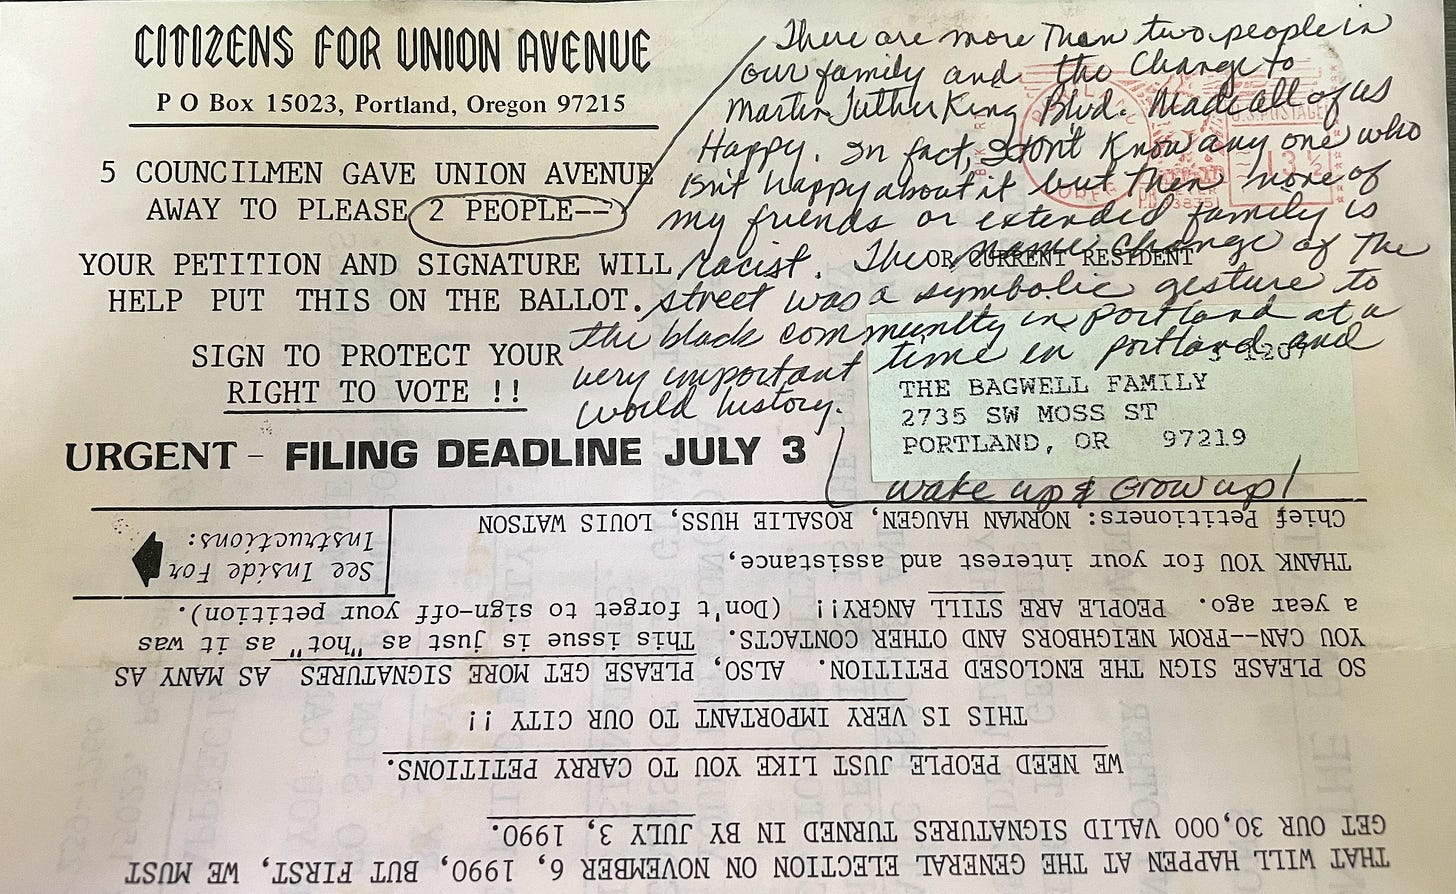 CITIZENS FOR UNION AVENUE
P O Box 15023, Portland, Oregon 97215
5 COUNCILMEN GAVE UNION AVENUE
AWAY TO PLEASE 2 PEOPLE--
YOUR PETITION AND SIGNATURE WILL
HELP PUT THIS ON THE BALLOT.
SIGN TO PROTECT YOUR
RIGHT TO VOTE !!
URGENT - FILING DEADLINE JULY 3
There are more Then two people in
our family and the Change to
Martin Luther King Blvd. Made all of us
Happy. In fact, I don't Know any one who
isn't happy about it but then none of
my friends or extended family is
racist. The name change of the
street was a symbolic gesture to
the black community in portland at a
very important time in portland and
world history.
wake up & Grow up!
U.S. POSTAGE
13½
OR CURRENT RESIDENT
THE BAGWELL FAMILY
2735 SW MOSS ST
PORTLAND, OR 97219
THAT WILL HAPPEN AT THE GENERAL ELECTION ON NOVEMBER 6, 1990, BUT FIRST, WE MUST
GET OUR 30,000 VALID SIGNATURES TURNED IN BY JULY 3, 1990.
WE NEED PEOPLE JUST LIKE YOU TO CARRY PETITIONS.
THIS IS VERY IMPORTANT TO OUR CITY !!
SO PLEASE SIGN THE ENCLOSED PETITION. ALSO, PLEASE GET MORE SIGNATURES AS MANY AS
YOU CAN--FROM NEIGHBORS AND OTHER CONTACTS. This issue is just as "hot" as it was
a year ago. PEOPLE ARE STILL ANGRY!! (Don't forget to sign-off your petition).
THANK YOU for your interest and assistance,
Chief Petitioners: NORMAN HAUGEN, ROSALIE HUSS, LOUIS WATSON
See Inside For
Instructions: